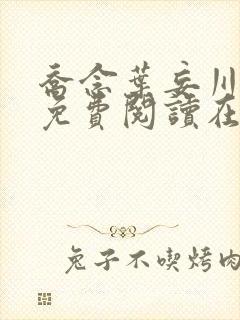 喬念葉妄川
免費閱讀在
兔子不喫烤肉